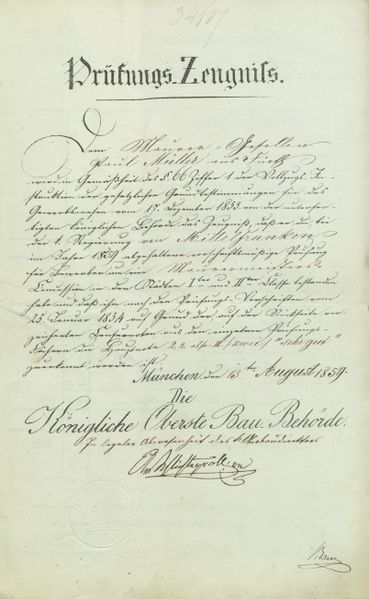 Prüfungs-Zeugniss.
Dem Maurer-Gesellen
Paul Müller aus Fürth
wird in Gemäßheit des § 66 Ziffer 1 der Vollzugs-In-
struktion der gesetzlichen Grundbestimmungen für das
Gewerbswesen vom 17. Dezember 1853 von der unterfer-
tigten königlichen Behörde das Zeugniß, daß er die bei
der k. Regierung von Mittelfranken
im Jahre 1859 abgehaltene vorschriftsmäßige Prüfung
für Bewerber um eine Maurermeisters-
Concession in den Städten Iter und IIter Classe bestanden
habe und daß ihm nach den Prüfungs-Vorschriften vom
25. Januar 1834 auf Grund der auf der Rückseite ver-
zeichneten Censurnoten aus den einzelnen Prüfungs-
Fächern die Hauptnote II (zwei) "sehr gut"
zuerkannt worden ist.
München den 13ten August 1859.
Die
Königliche Oberste Bau-Behörde.
In legaler Abwesenheit des k. Oberbaudirektors